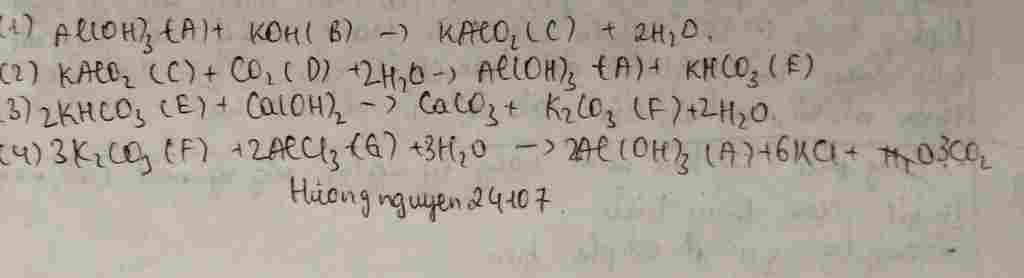 (1) Al(OH)3 (A) + KOH (B) -> KAlO2 (C) + 2H2O.
(2) KAlO2 (C) + CO2 (D) + 2H2O -> Al(OH)3 (A) + KHCO3 (E)
3) 2KHCO3 (E) + Ca(OH)2 -> CaCO3 + K2CO3 (F) + 2H2O.
(4) 3K2CO3 (F) + 2AlCl3 (G) + 3H2O -> 2Al(OH)3 (A) + 6KCl + 3CO2
Hương nguyen 24107